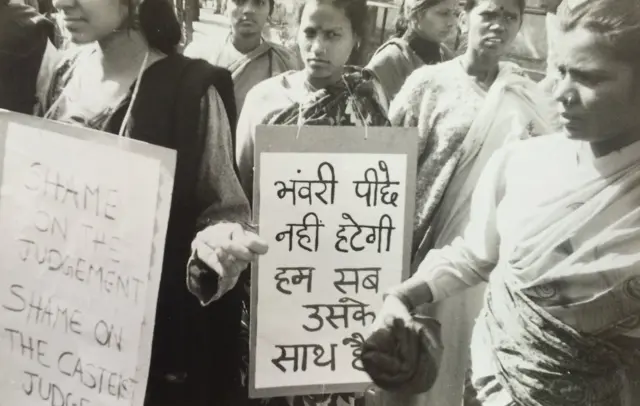 SHAME
ON THE
JUDGEMENT
SHAME ON
THE CASTEIST
भंवरी पीछै
नहीं हटेगी
हम सब
उसके
साथ है